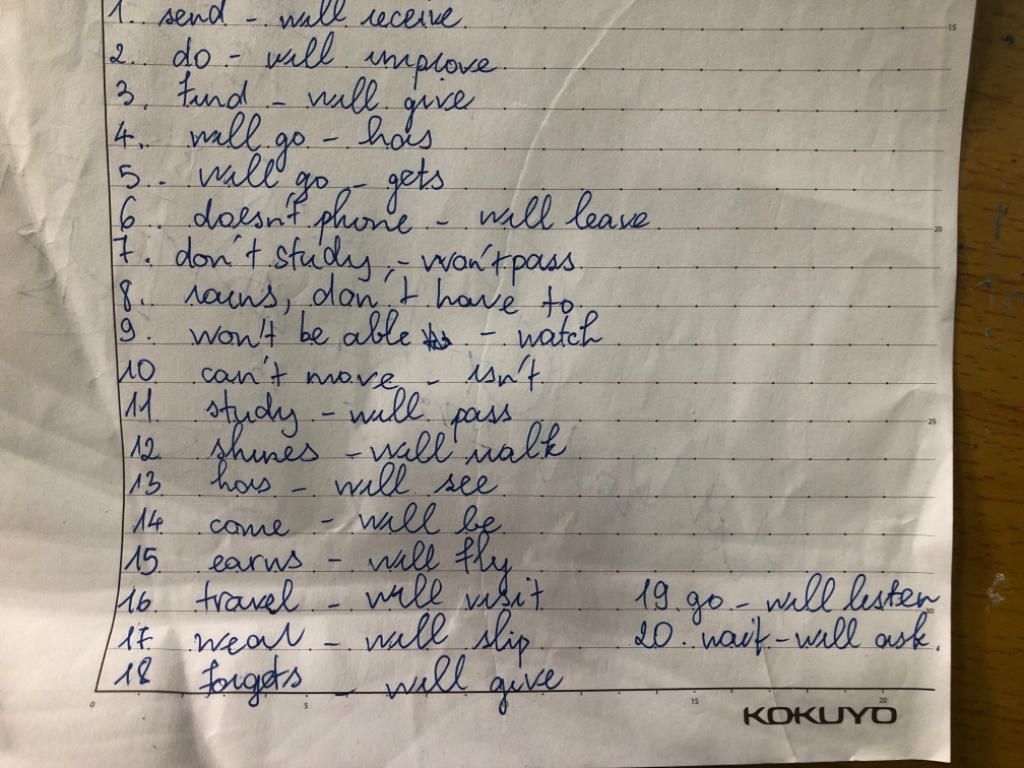 1. send - will receive
15
2. do - will improve
3. find - will give
4. will go - has
5. will go - gets
6. doesn't phone - will leave
20
7. don't study, - won't pass
8. rains, don't have to
9. won't be able - watch
10 can't move - isn't
11 study - will pass
25
12 shines - will walk
13 has - will see
14 come - will be
15 earns - will fly
16 travel - will visit
19. go - will listen
30
17 wear - will slip
20. wait - will ask.
18 forgets - will give
0 5 15 20
KOKUYO